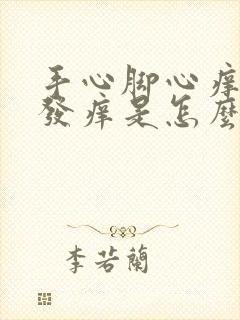 手心脚心痒
發痒是怎麼
李若蘭